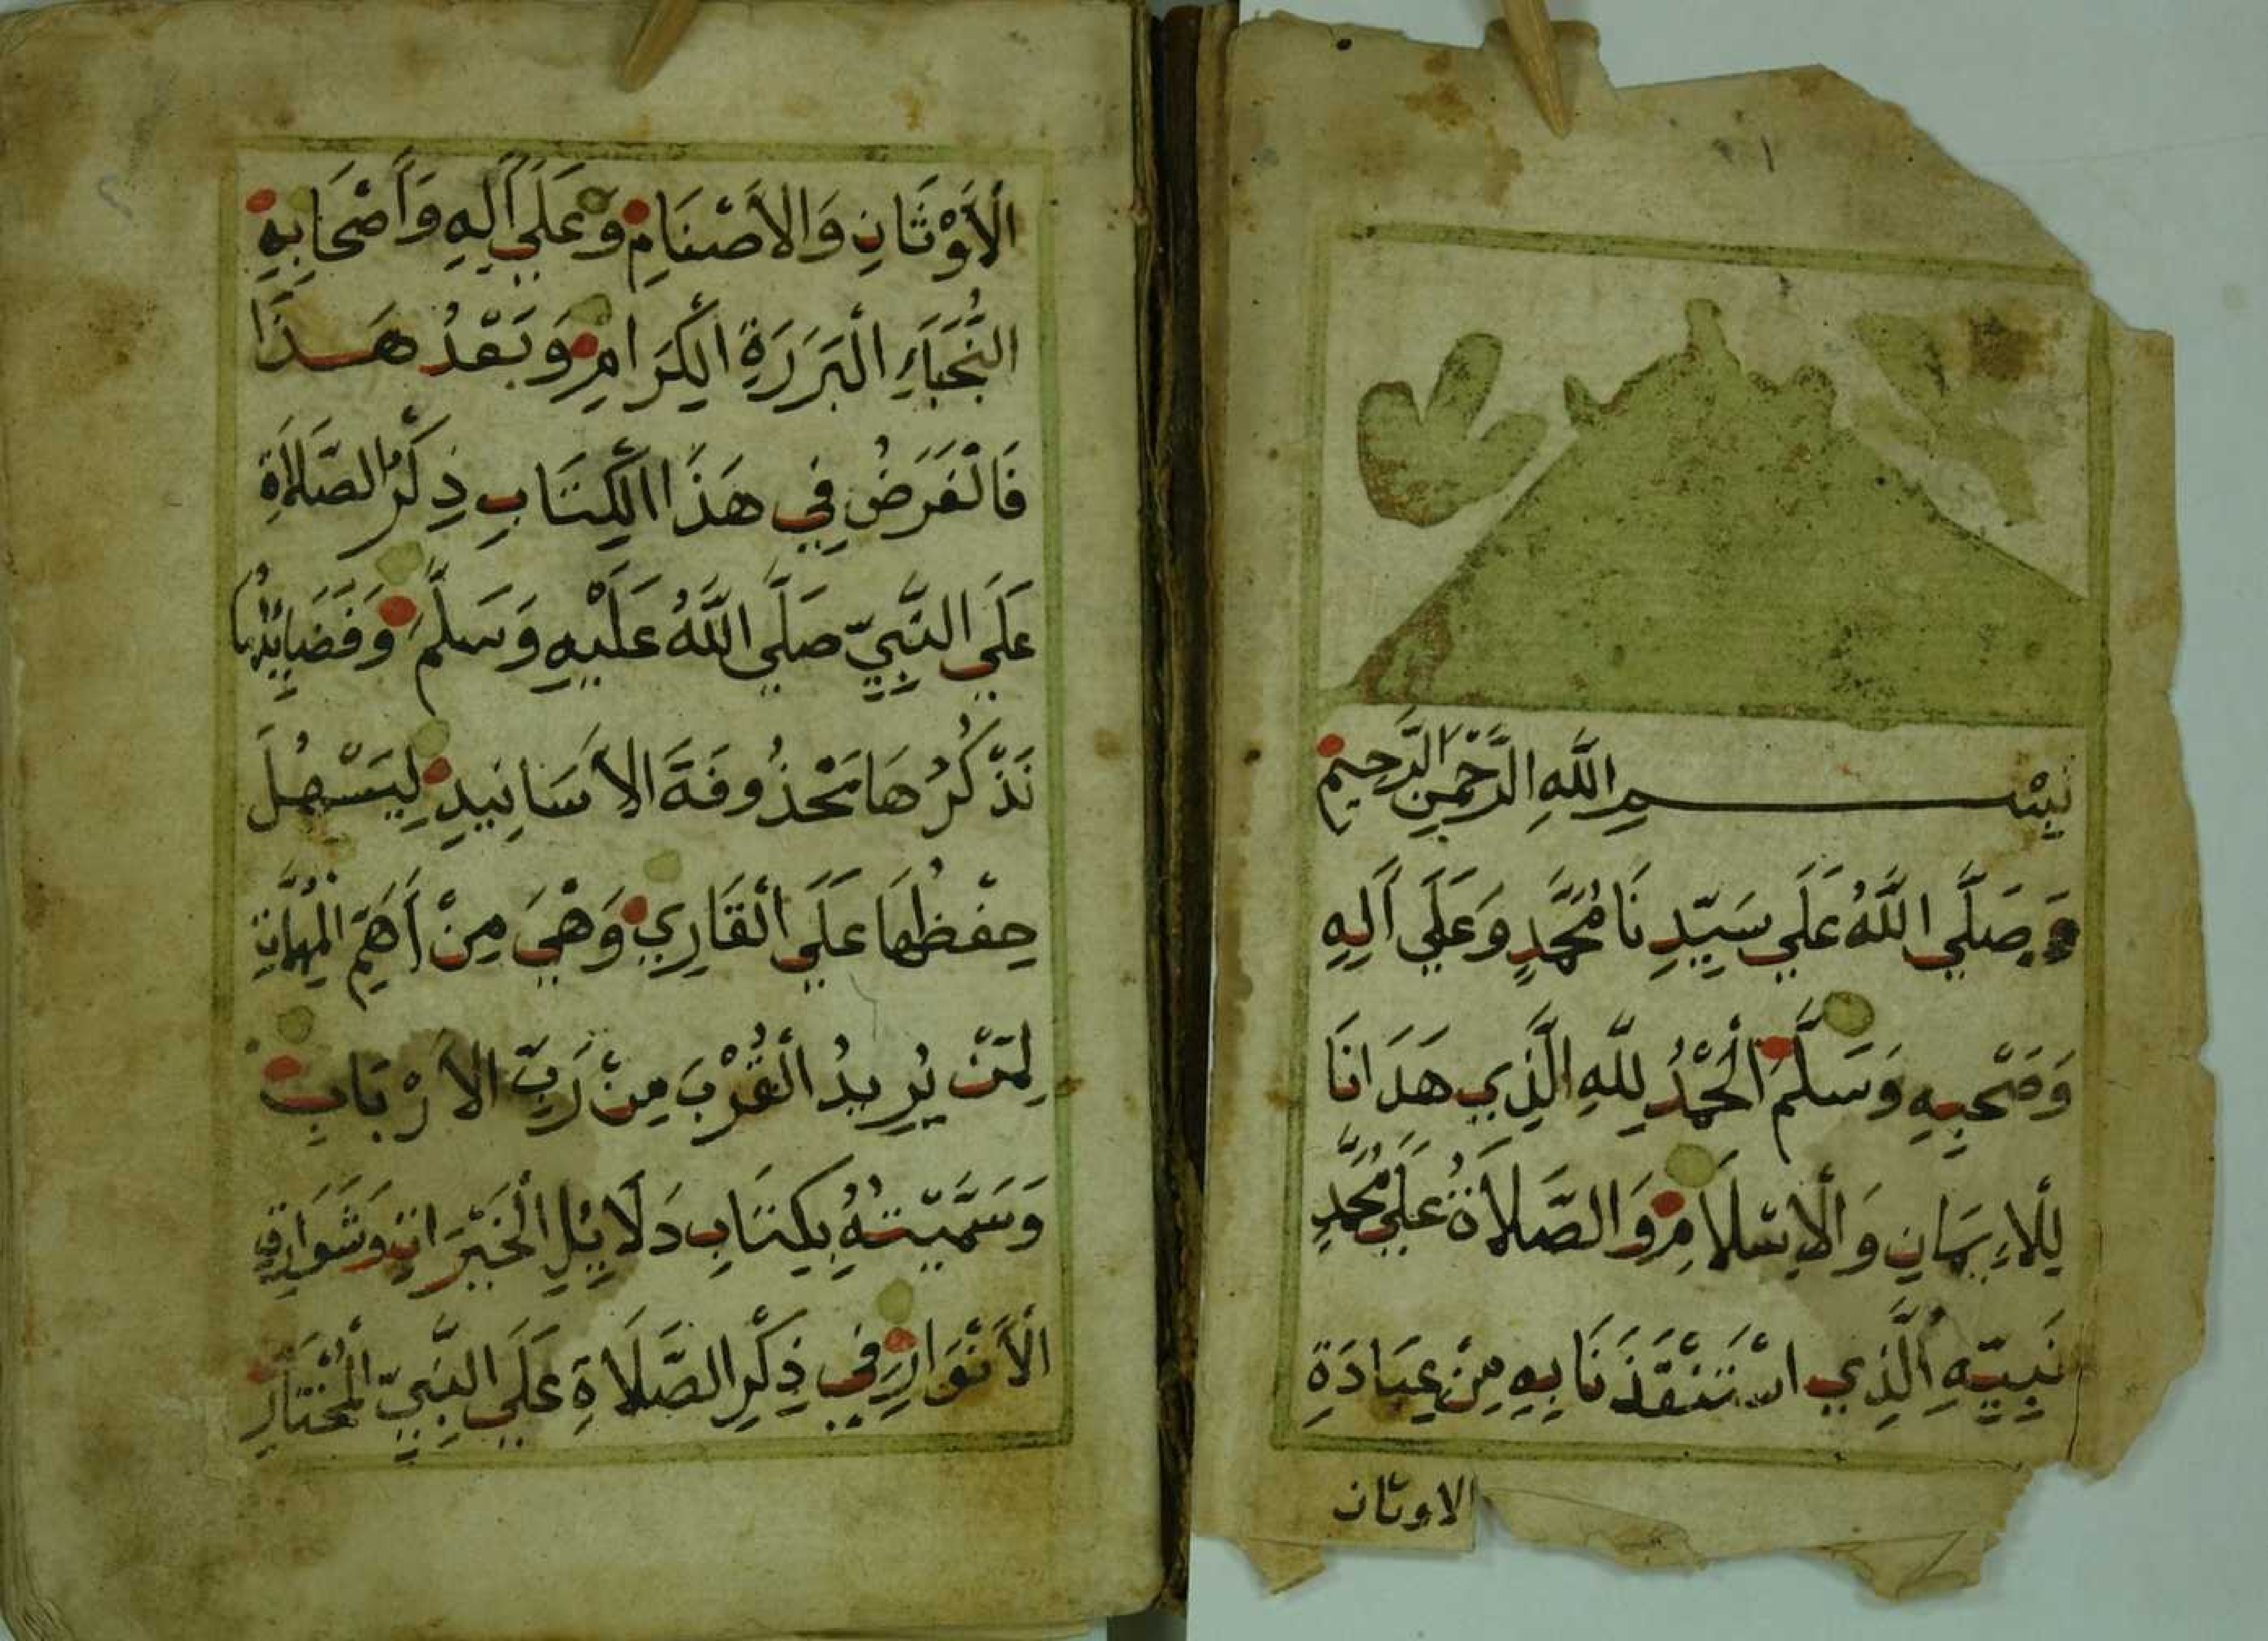 ١
بِسْمِ اللَّهِ الرَّحْمَنِ الرَّحِيمِ
وَصَلَّي اللَّهُ عَلَي سَيِّدِنَا مُحَمَّدٍ وَعَلَي آلِهِ
وَصَحْبِهِ وَسَلَّمَ الْحَمْدُ لِلَّهِ الَّذِي هَدَانَا
لِلْاِيمَانِ وَالْاِسْلَامِ وَالصَّلَاةُ عَلَي مُحَمَّدٍ
نَبِيِّهِ الَّذِي اسْتَنْقَذَنَا بِهِ مِنْ عِبَادَةِ
الاوثان
٢
الْأَوْثَانِ وَالأَصْنَامِ وَعَلَي آلِهِ وَأَصْحَابِهِ
النُّجَبَاءِ الْبَرَرَةِ الْكِرَامِ وَبَعْدُ هَذَا
فَالْغَرَضُ فِي هَذَا الْكِتَابِ ذِكْرُ الصَّلَاةِ
عَلَي النَّبِيِّ صَلَّي اللَّهُ عَلَيْهِ وَسَلَّمَ وَفَضَائِلُهَا
نَذْكُرُهَا مَحْذُوفَةَ الأَسَانِيدِ لِيَسْهُلَ
حِفْظُهَا عَلَي الْقَارِي وَهْيَ مِنْ أَهَمِّ الْمُهِمَّاتِ
لِمَنْ يُرِيدُ الْقُرْبَ مِنْ رَبِّ الأَرْبَابِ
وَسَمَّيْتُهُ بِكِتَابِ دَلَائِلِ الْخَيْرَاتِ وَشَوَارِقِ
الْأَنْوَارِ فِي ذِكْرِ الصَّلَاةِ عَلَي النَّبِيِّ الْمُخْتَارِ